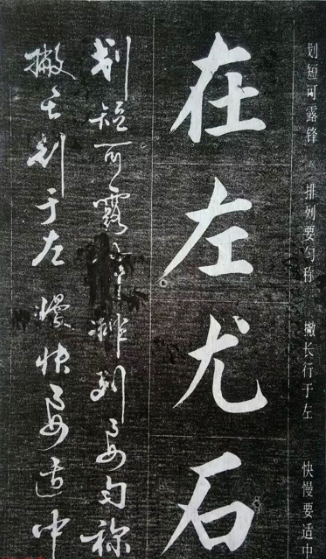 划短可露锋 排列要匀称 撇长行于左 快慢要适中
在左尤石
划短可露锋排列要匀称
撇长划于左慢快要适中